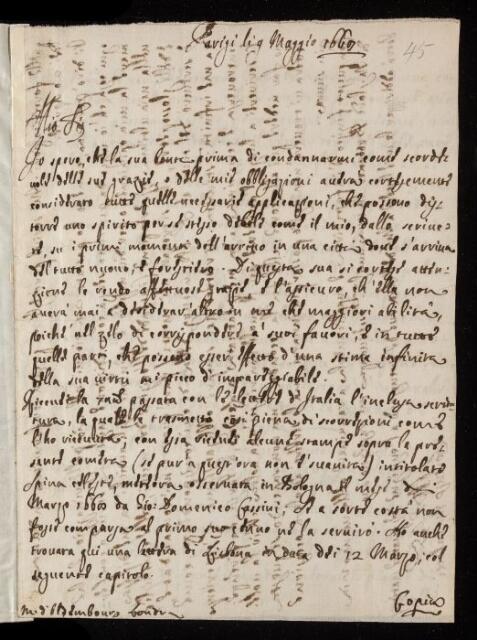 Parigi li 9 Maggio 1668
45
Mio Sig.
Io spero, che la sua bontà prima di condannarmi come scorde
vole delle sue grazie, e delle mie obbligazioni avrà cortesemente
considerato tutte quelle necessarie applicazioni, che possono dis
torre uno spirito per se stesso debole come il mio, dallo scrive
re su i primi momenti dell'arrivo in una città dove s'arriva
del tutto nuovo, e forestiero. Di questa sua sì cortese atten
zione le rendo affettuose grazie e l'assicuro, ch'ella non
averà mai a desiderar'altro in me che maggiori abilità,
poiché nel zelo di corrispondere a' suoi favori, e in tutte
quelle parti, che possono esser effetto d'una stima infinita
della sua virtù mi picco d'impareggiabile.
Ricevei la passata con le d'Italia l'inclusa scrit
tura, la quale le trasmetto così piena di scorrezioni come
l'ho ricevuta; con essa vedute alcune stampe sopra la pre
sente cometa (se pur a quest'ora non è svanita) intitolate
Spina celeste meteora osservata in Bologna il mese di
Marzo 1668 da Gio: Domenico Cassini, se a sorte costà non
fosse comparsa al primo suo cenno ne la servirò. Ho anche
trovata qui una lettera di Lisbona in data dei 12 Marzo, col
seguente capitolo.
Londra
Copia